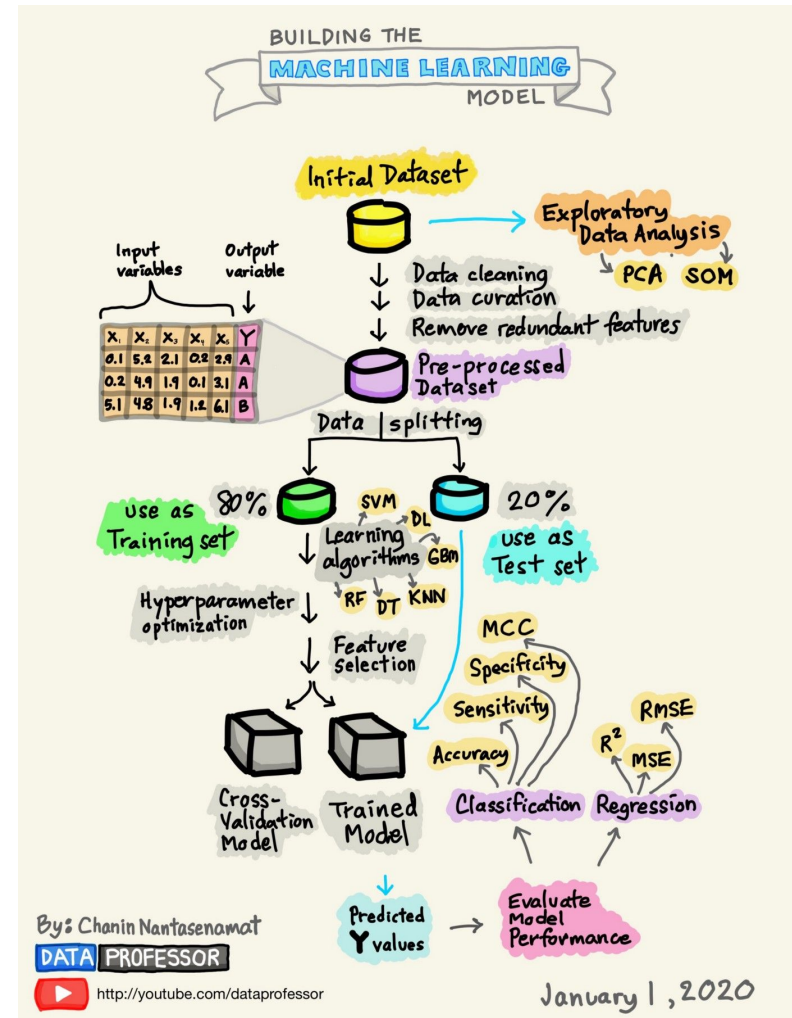 BUILDING THE
MACHINE LEARNING
MODEL
Initial Dataset
Exploratory
Data Analysis
PCA SOM
Data cleaning
Data curation
Remove redundant features
Input
variables
Output
variable
X₁ X₂ X₃ X₄ X₅ Y
0.1 5.2 2.1 0.2 2.9 A
0.2 4.9 1.9 0.1 3.1 A
5.1 4.8 1.9 1.2 6.1 B
Pre-processed
Dataset
Data splitting
80%
use as
Training set
20%
use as
Test set
Learning
algorithms
SVM
DL
GBm
KNN
DT
RF
Hyperparameter
optimization
Feature
selection
Cross-
Validation
Model
Trained
Model
MCC
Specificity
Sensitivity
Accuracy
Classification
RMSE
R²
MSE
Regression
Predicted
Y values
Evaluate
Model
Performance
By: Chanin Nantasenamat
DATA PROFESSOR
http://youtube.com/dataprofessor
January 1, 2020